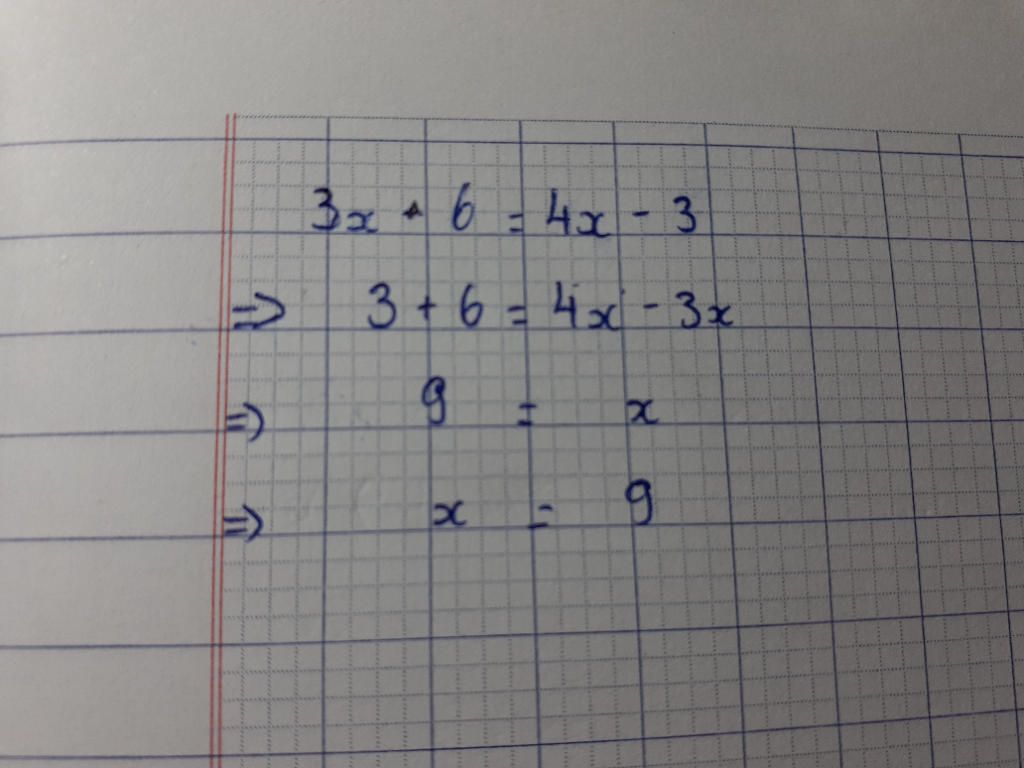 3x + 6 = 4x - 3
=> 3 + 6 = 4x - 3x
=> 9 = x
=> x = 9